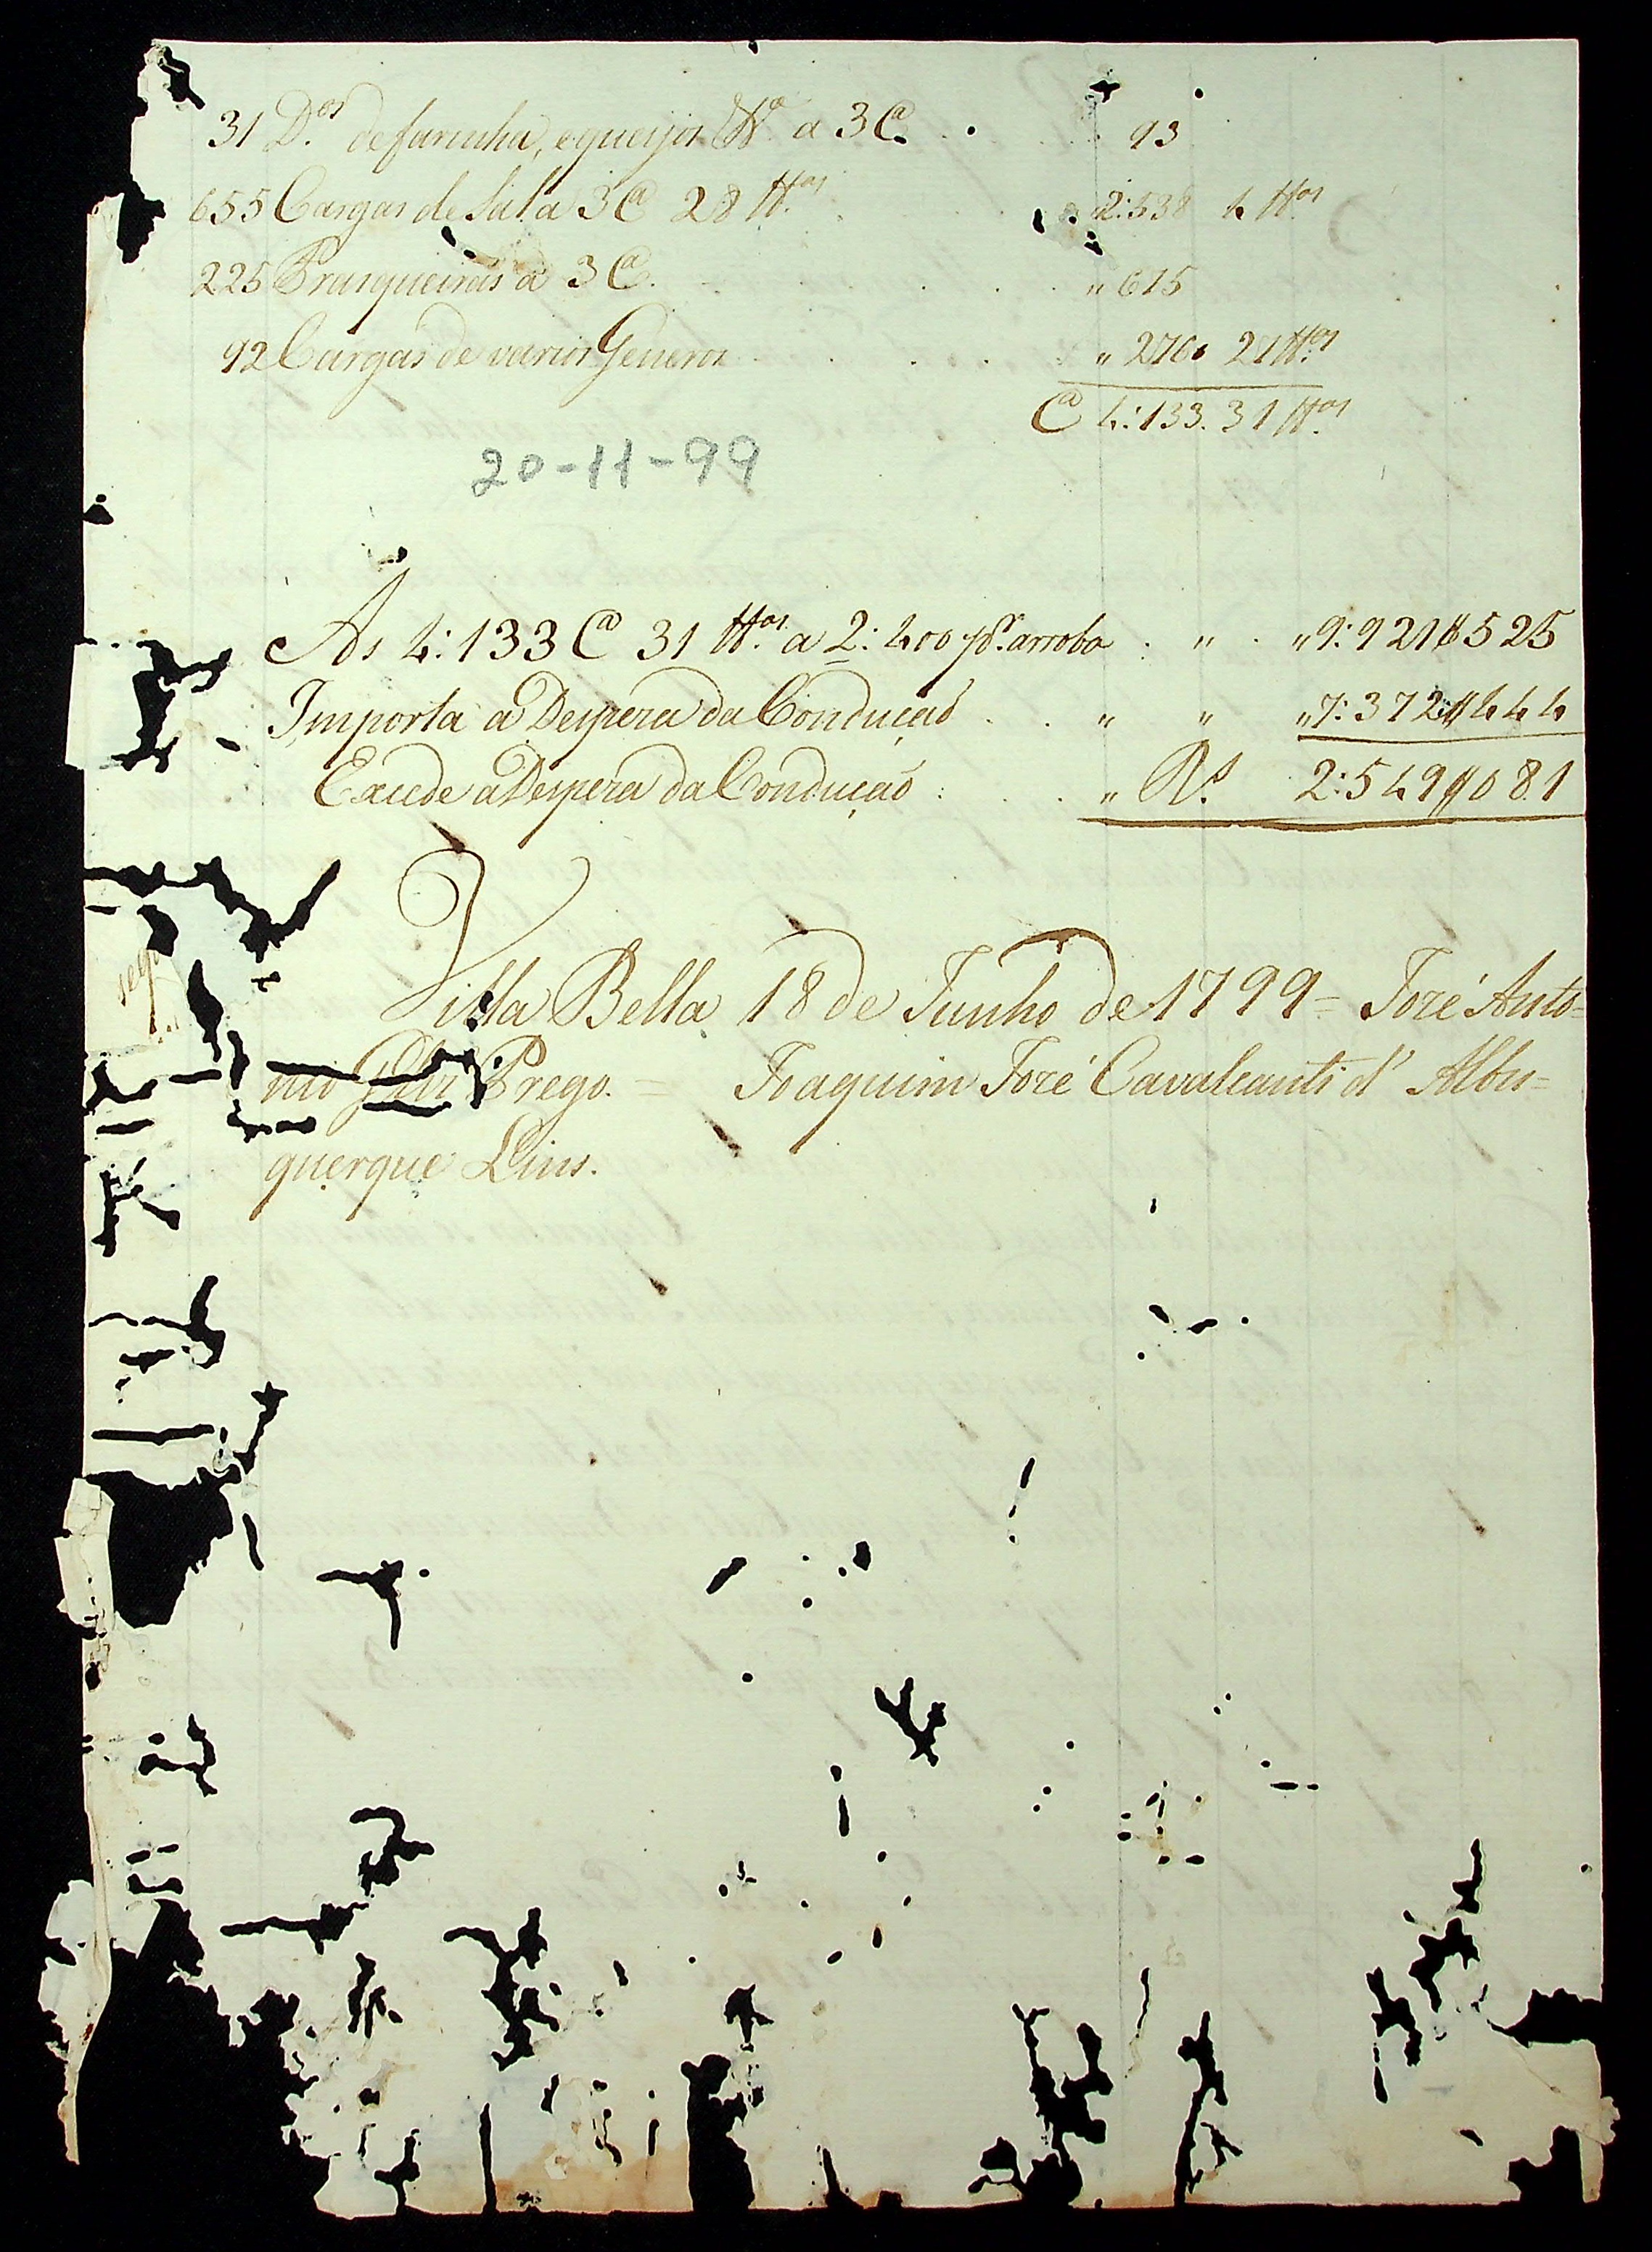 31 D.os de farinha, e queijos &.a a 3 @ . 93
655 Cargas de Sal a 3 @ 28 tt.as 2:538 4 tt.as
225 Frasqueiras a 3 @ . „ 675
92 Cargas de varios Generos „ 276. 21 tt.as
@ 4:133. 31 tt.as
20-11-99
As 4:133 @ 31 tt.as a 2:400 p.r arroba . „ . „ 9:921$525
Importa a Despeza da Conducaõ . . „ „ „ 7:372$444
Excede a Despeza da Conducaõ : . . „ R.s 2:549$081
Villa Bella 18 de Junho de 1799 = José Anto=
nio Prego. = Joaquim José Cavalcanti d' Albu=
querque Lins.